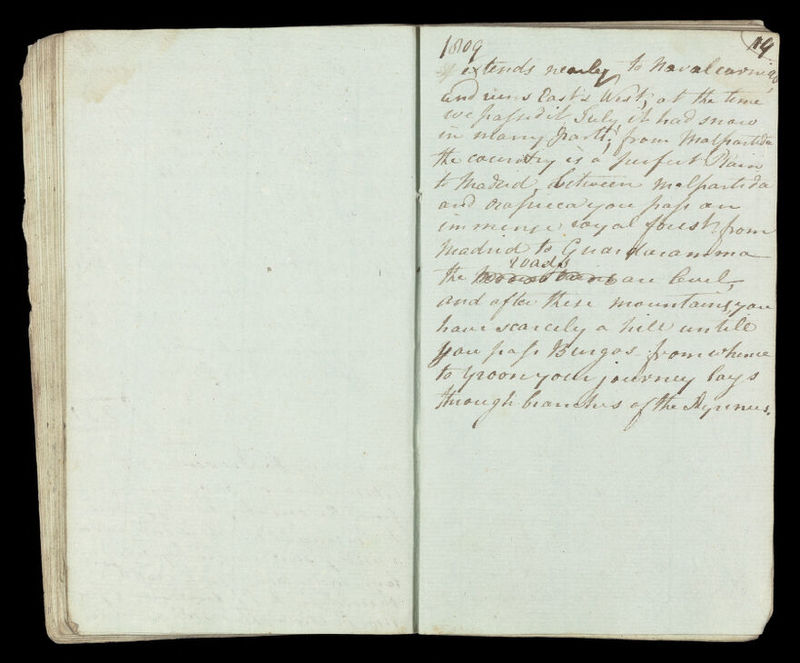 1809
119
extends nearly to Navalcarnigo,
and runs East & West, at the time
we passed it July it had snow
in many parts; from Malpartida
the country is a perfect Plain
to Madrid, between Malpartida
and you pass an
immense royal forest, from
Madrid to Guardaramma
the roads are level,
and after these mountains, you
have scarcely a hill untill
you pass Burgos from whence
to Yroon your journey lays
through branches of the Pyrenees.